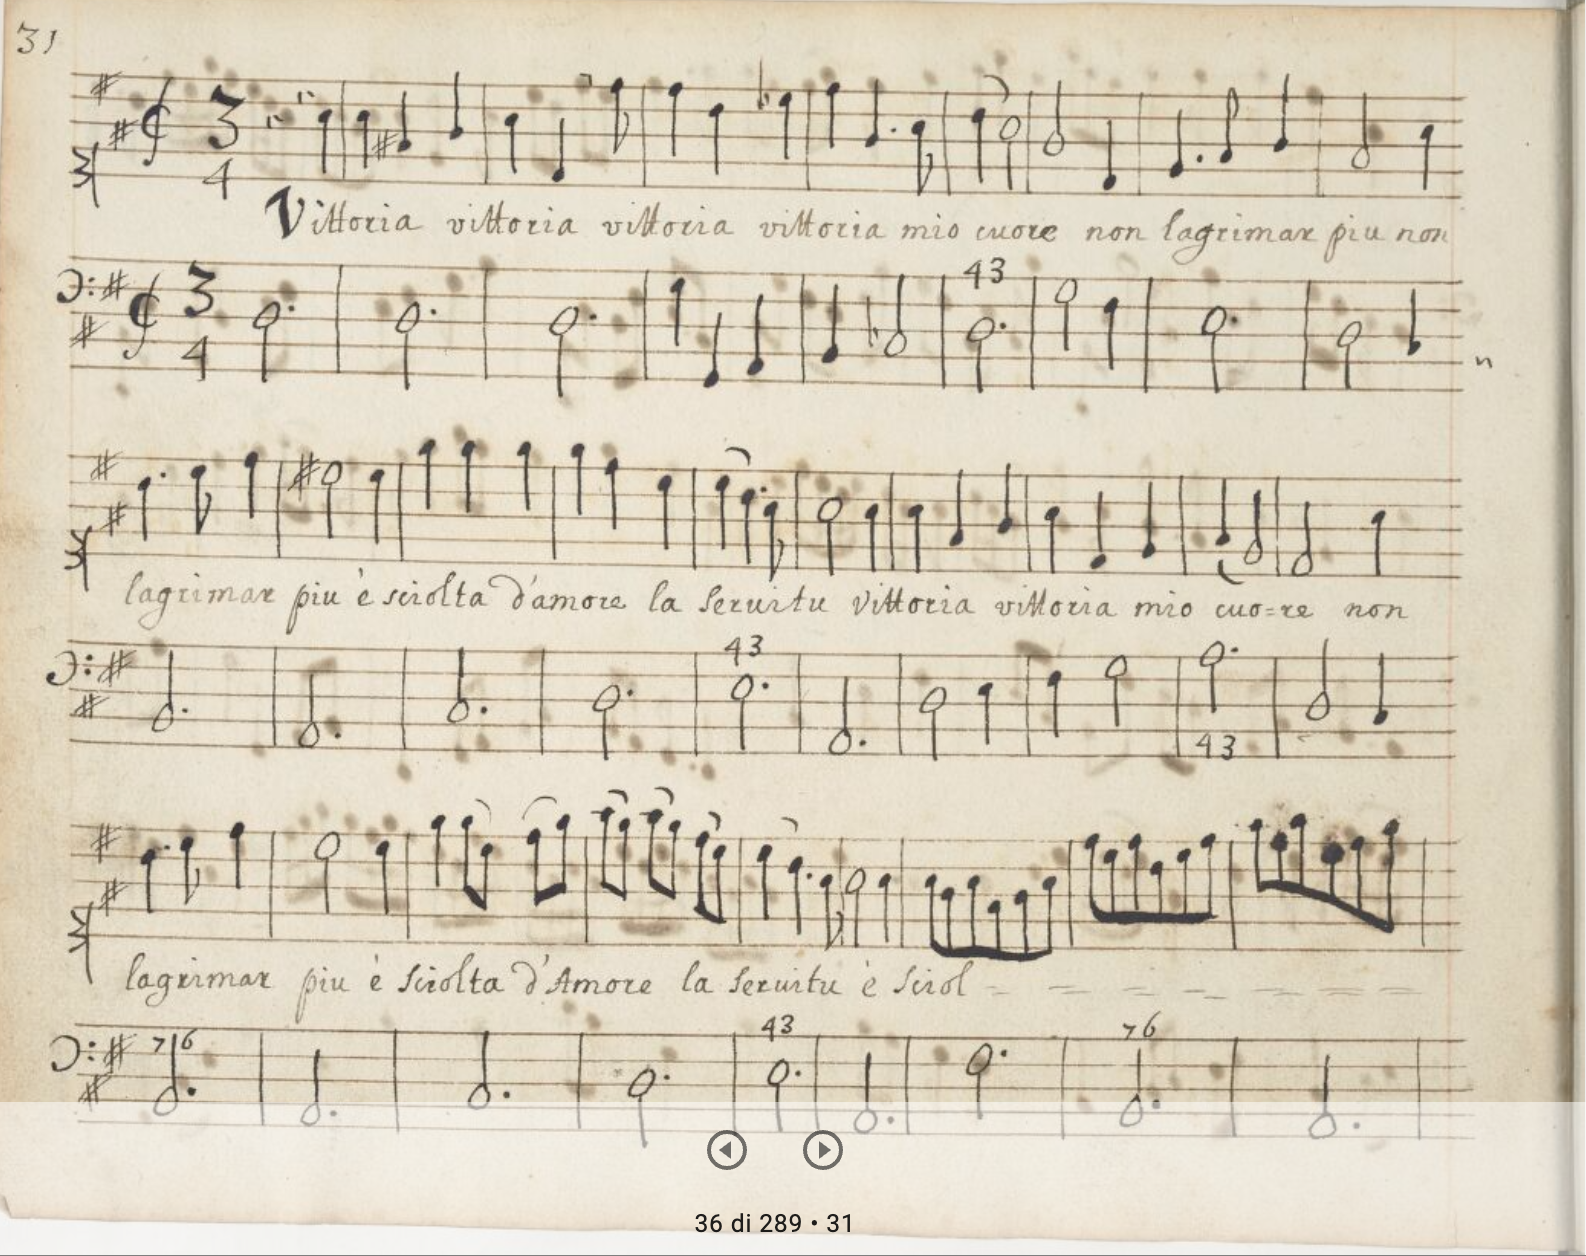 31
3
4
Vittoria vittoria vittoria vittoria mio cuore non lagrimar piu non
43
3
4
lagrimar piu è sciolta d'amore la seruitu vittoria vittoria mio cuo=re non
43
43
lagrimar piu è sciolta d'Amore la seruitu è sciol
76
43
76
36 di 289 • 31